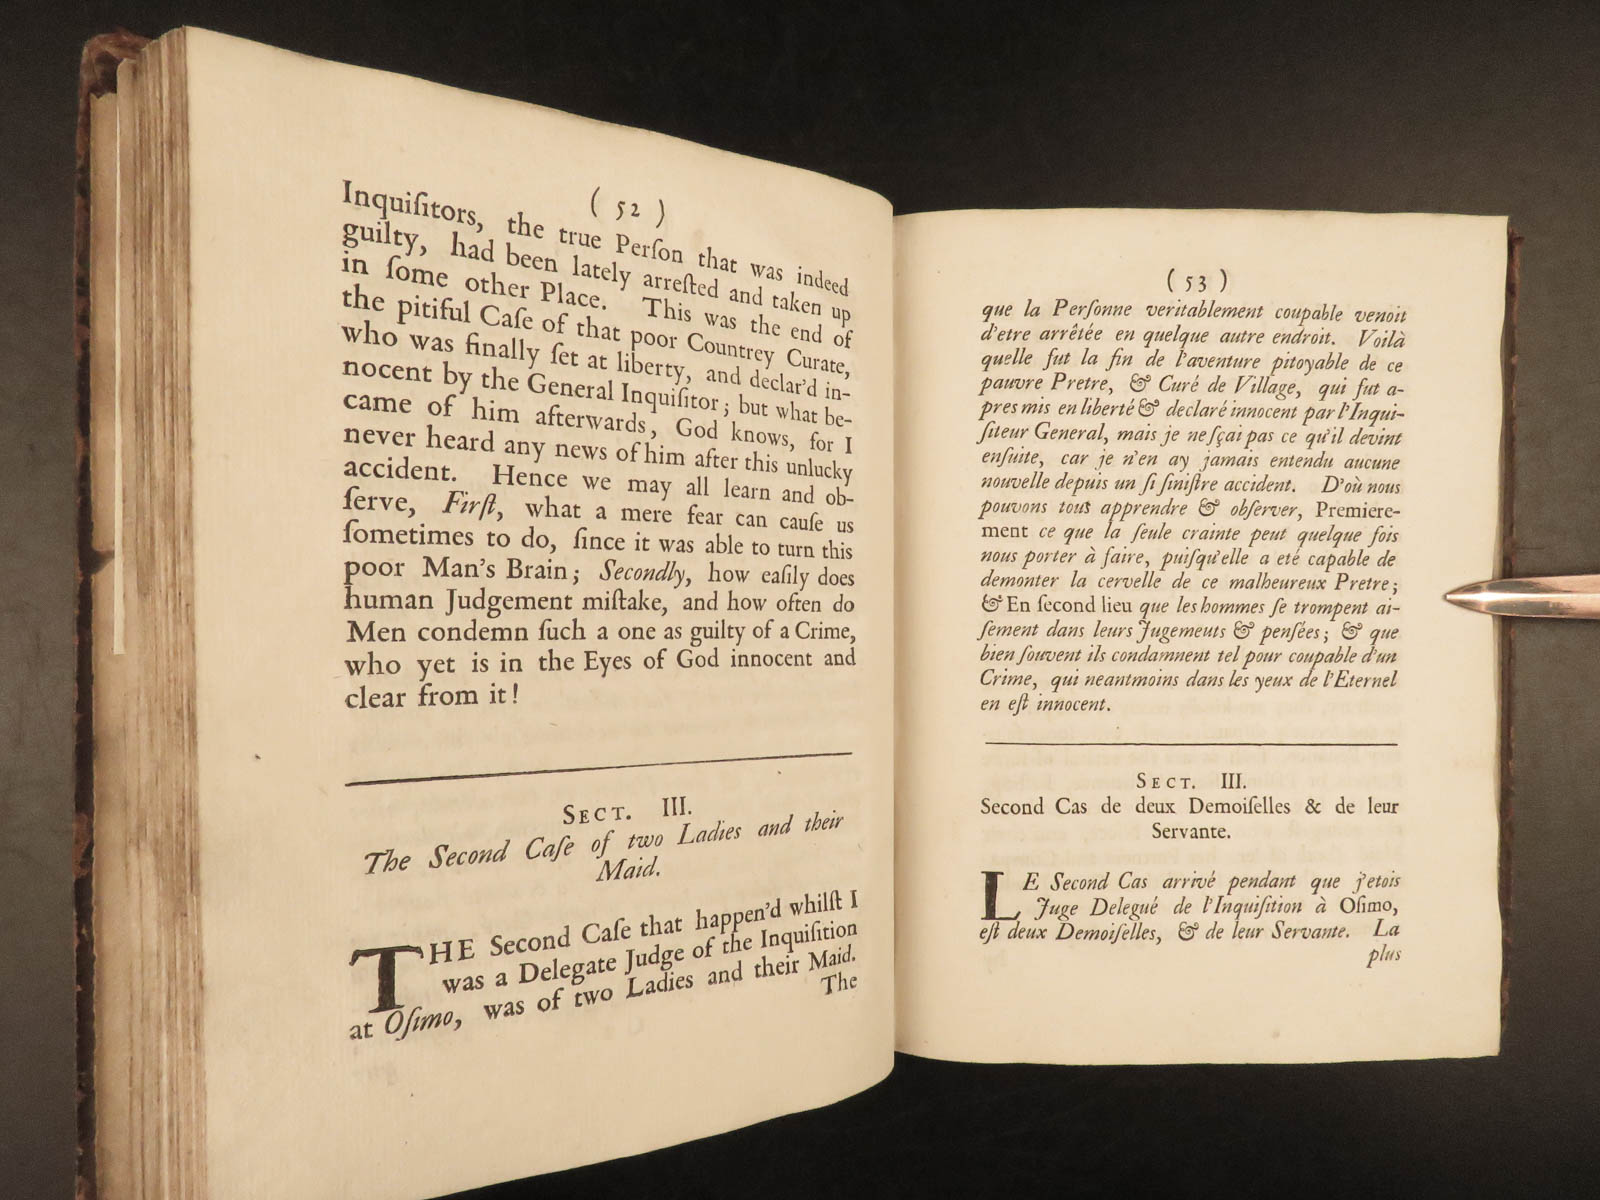 ( 52 )
Inquiſitors, the true Perſon that was indeed
guilty, had been lately arreſted and taken up
in ſome other Place. This was the end of
the pitiful Caſe of that poor Countrey Curate,
who was finally ſet at liberty, and declar'd in-
nocent by the General Inquiſitor; but what be-
came of him afterwards, God knows, for I
never heard any news of him after this unlucky
accident. Hence we may all learn and ob-
ſerve, Firſt, what a mere fear can cauſe us
ſometimes to do, ſince it was able to turn this
poor Man's Brain; Secondly, how eaſily does
human Judgement miſtake, and how often do
Men condemn ſuch a one as guilty of a Crime,
who yet is in the Eyes of God innocent and
clear from it!
SECT. III.
The Second Caſe of two Ladies and their
Maid.
THE Second Caſe that happen'd whilſt I
was a Delegate Judge of the Inquiſition
at Oſimo, was of two Ladies and their Maid.
The
( 53 )
que la Perſonne veritablement coupable venoit
d'etre arrêtée en quelque autre endroit. Voilà
quelle fut la fin de l'aventure pitoyable de ce
pauvre Pretre, & Curé de Village, qui fut a-
pres mis en liberté & declaré innocent par l'Inqui-
ſiteur General, mais je ne ſçai pas ce qu'il devint
enſuite, car je n'en ay jamais entendu aucune
nouvelle depuis un ſi ſiniſtre accident. D'où nous
pouvons tous apprendre & obſerver, Premiere-
ment ce que la ſeule crainte peut quelque fois
nous porter à faire, puiſqu'elle a eté capable de
demonter la cervelle de ce malheureux Pretre;
& En ſecond lieu que les hommes ſe trompent ai-
ſement dans leurs Jugemeuts & penſées; & que
bien ſouvent ils condamnent tel pour coupable d'un
Crime, qui neantmoins dans les yeux de l'Eternel
en eſt innocent.
SECT. III.
Second Cas de deux Demoiſelles & de leur
Servante.
LE Second Cas arrivé pendant que j'etois
Juge Delegué de l'Inquiſition à Oſimo,
eſt deux Demoiſelles, & de leur Servante. La
plus